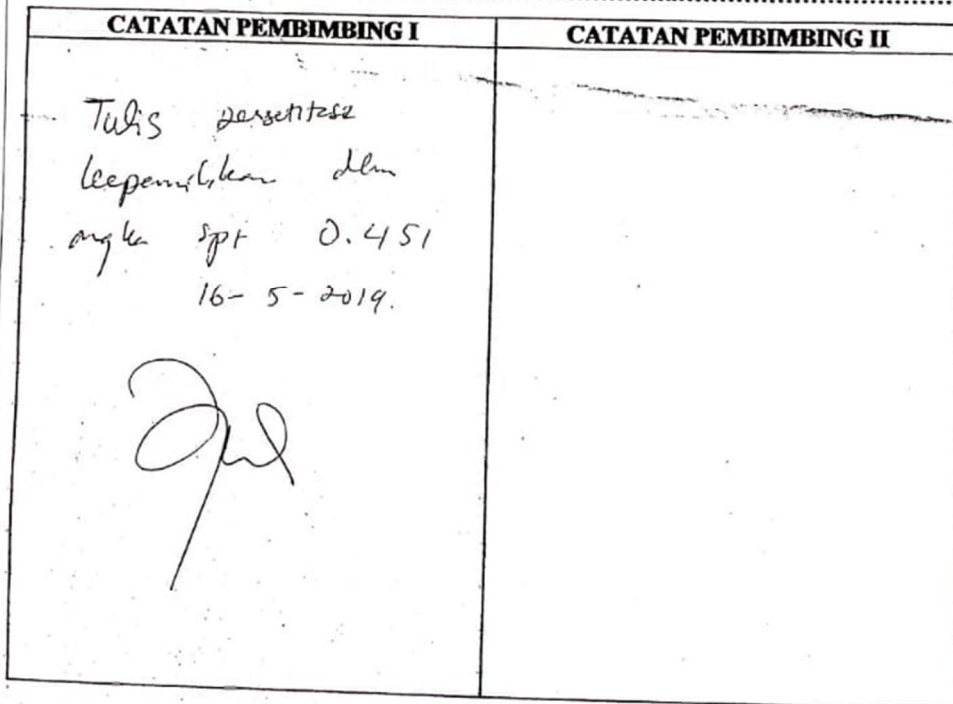 CATATAN PEMBIMBING I
CATATAN PEMBIMBING II
Tulis persentase
kepemilikan dlm
angka spt 0.451
16-5-2019.